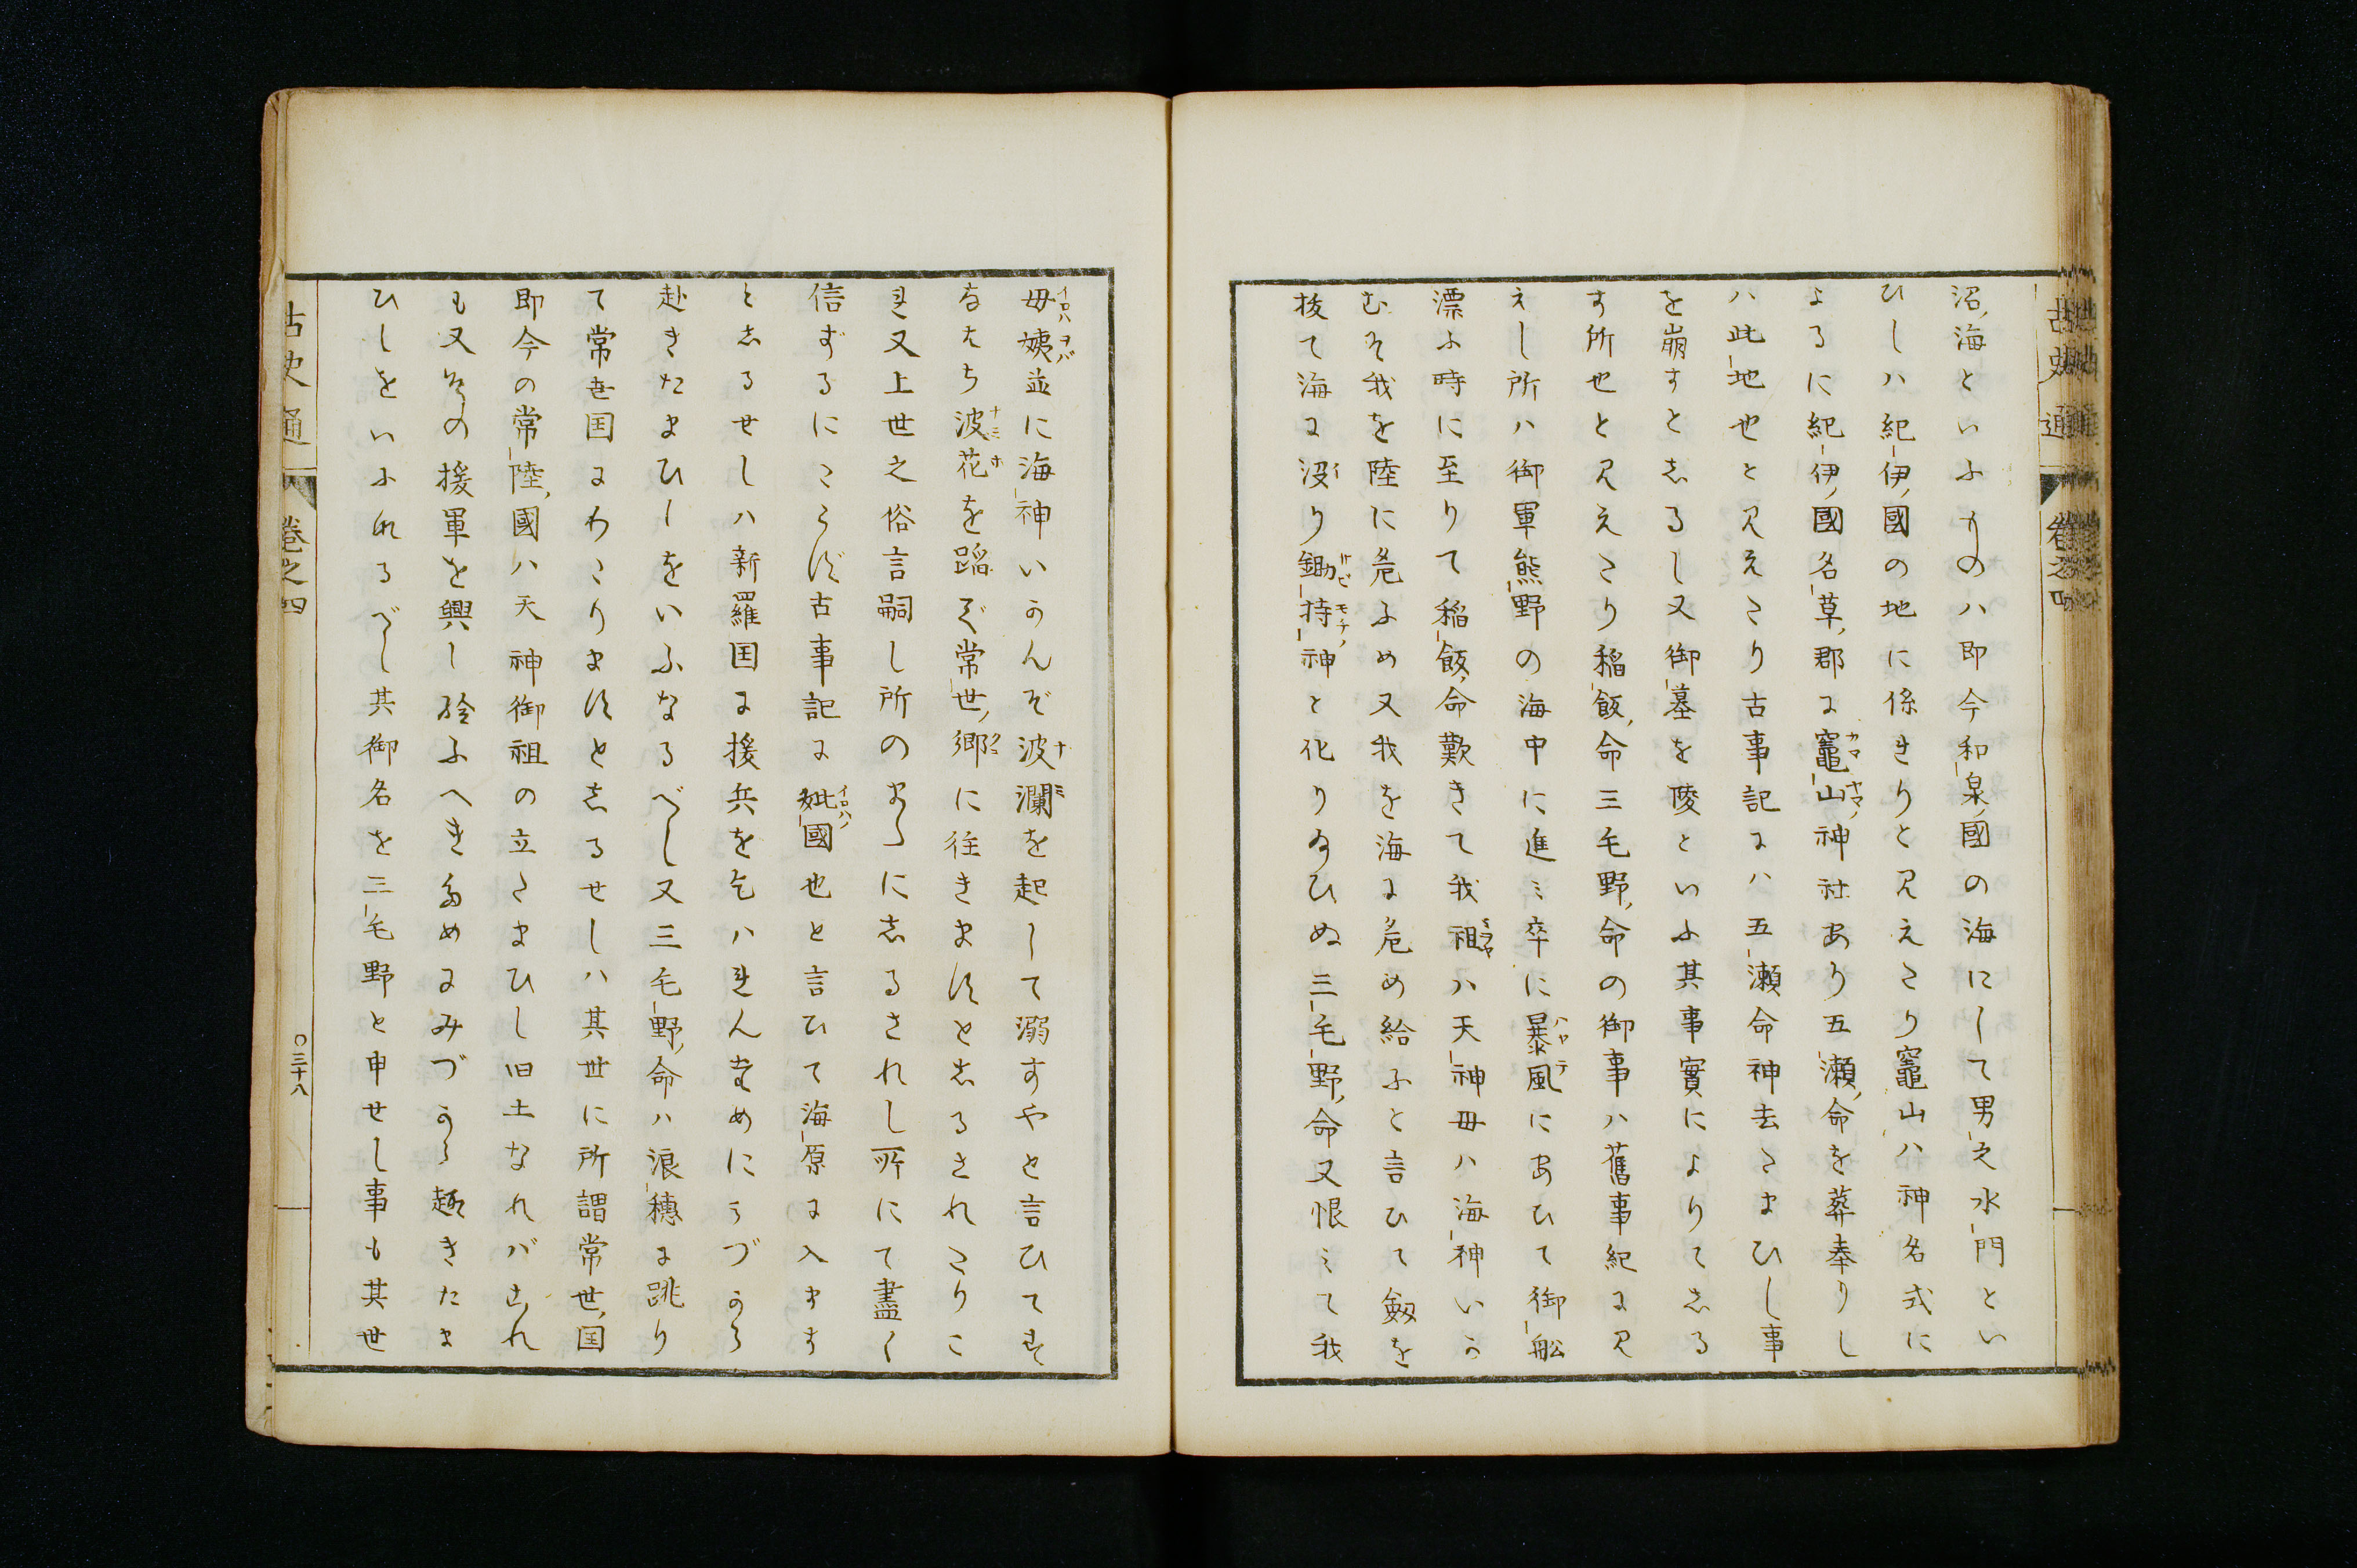 古史通 巻之四
沼海といふものハ即今和泉國の海にして男之水門とい
ひしハ紀伊國の地に係きりと見えたり竈山ハ神名式に
よるに紀伊國名草郡に竈山神社あり五瀬命を葬奉りし
ハ此地也と見えたり古事記にハ五瀬命神去たまひし事
を崩すとしるし又御墓を陵といふ其事實によりてしる
す所也と見えたり稲飯命三毛野命の御事ハ舊事紀に見
えし所ハ御軍熊野の海中に進ミ卒に暴風にあひて御舩
漂ふ時に至りて稲飯命歎きて我祖ハ天神母ハ海神いか
むそ我を陸に危ふめ又我を海に危め給ふと言ひて劔を
抜て海に没り鋤持神と化り給ひぬ三毛野命又恨ミて我
母姨並に海神いかんぞ波瀾を起して溺すやと言ひてす
なはち波花を蹈て常世郷に往きましぬとしるされたりこ
れ又上世之俗言嗣し所のまゝにしるされし所にて盡く
信ずるにたらず古事記に妣國也と言ひて海原に入ます
としるせしハ新羅国に援兵を乞ハれんためにみづから
赴きたまひしをいふなるべし又三毛野命ハ浪穂に跳り
て常世国にわたりますとしるせしハ其世に所謂常世国
即今の常陸國ハ天神御祖の立たまひし旧土なれバこれ
も又その援軍を興し給ふへきためにみづから趣きたま
ひしをいふれるべし其御名を三毛野と申せし事も其世
古史通 巻之四
〇三十八